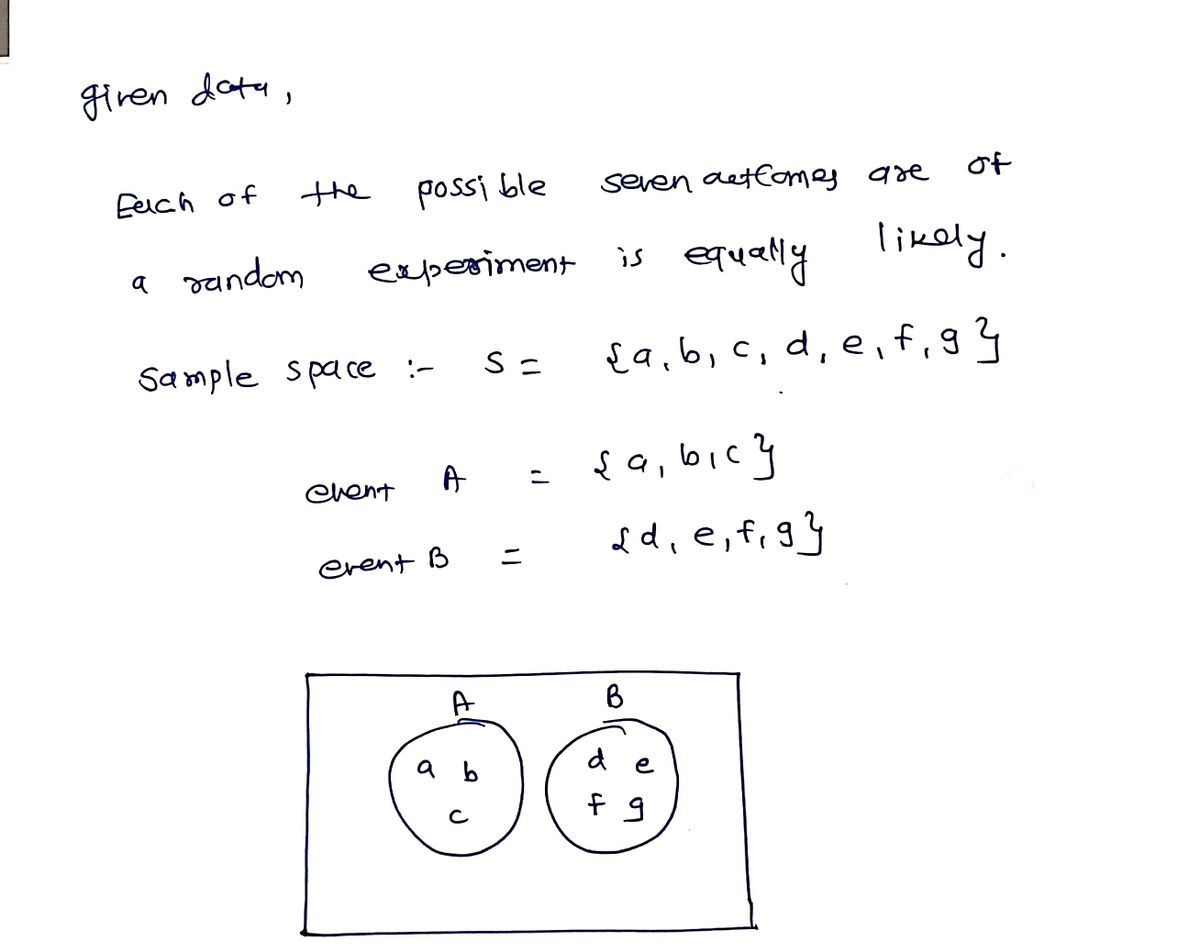 given data,
Each of the possible seven outcomes are of
a random experiment is equally likely.
Sample space :- S = {a, b, c, d, e, f, g}
event A = {a, b, c}
event B = {d, e, f, g}
A B
a b d e
c f g